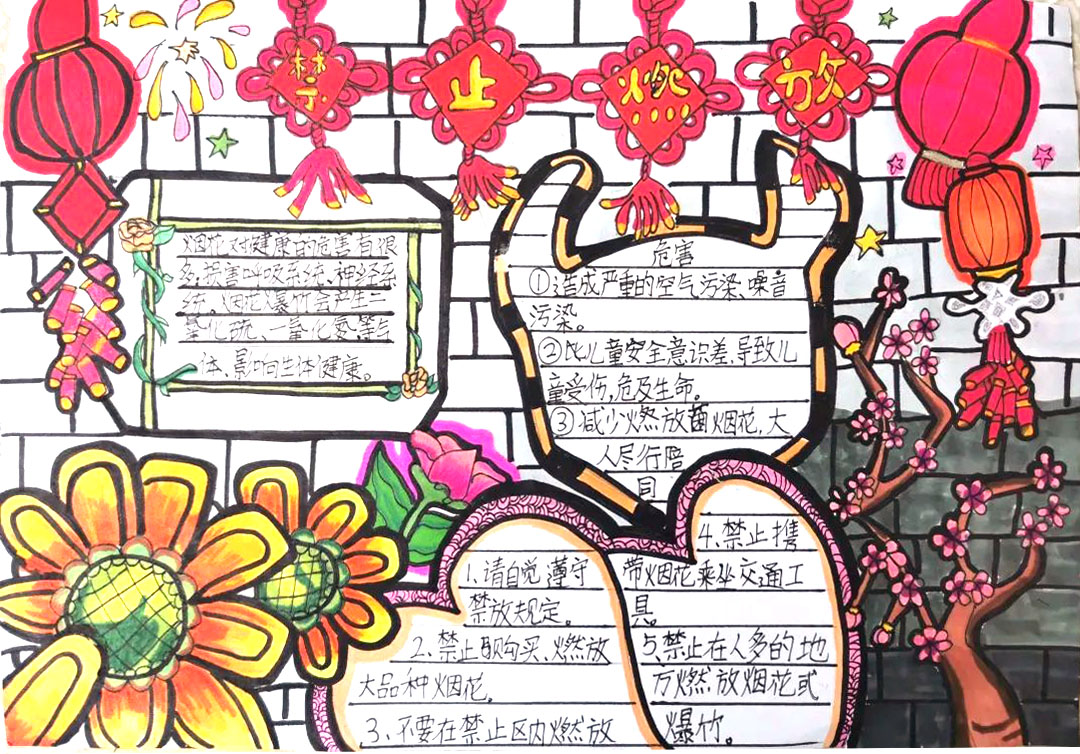 禁止燃放
烟花对健康的危害有很
多:损害呼吸系统、神经系
统。烟花爆竹会产生二
氧化硫、一氧化氮、等气
体、影响生体健康。
危害
①造成严重的空气污染、噪音
污染。
②此儿童安全意识差,导致儿
童受伤,危及生命。
③减少燃放 烟花,大
人尽行陪
目
1、请自觉遵守
禁放规定。
2、禁止 购买、燃放
大品种烟花。
3、不要在禁止区内燃放
4、禁止携
带烟花乘坐交通工
具
5、禁止在人多的地
方燃放烟花或
爆竹。